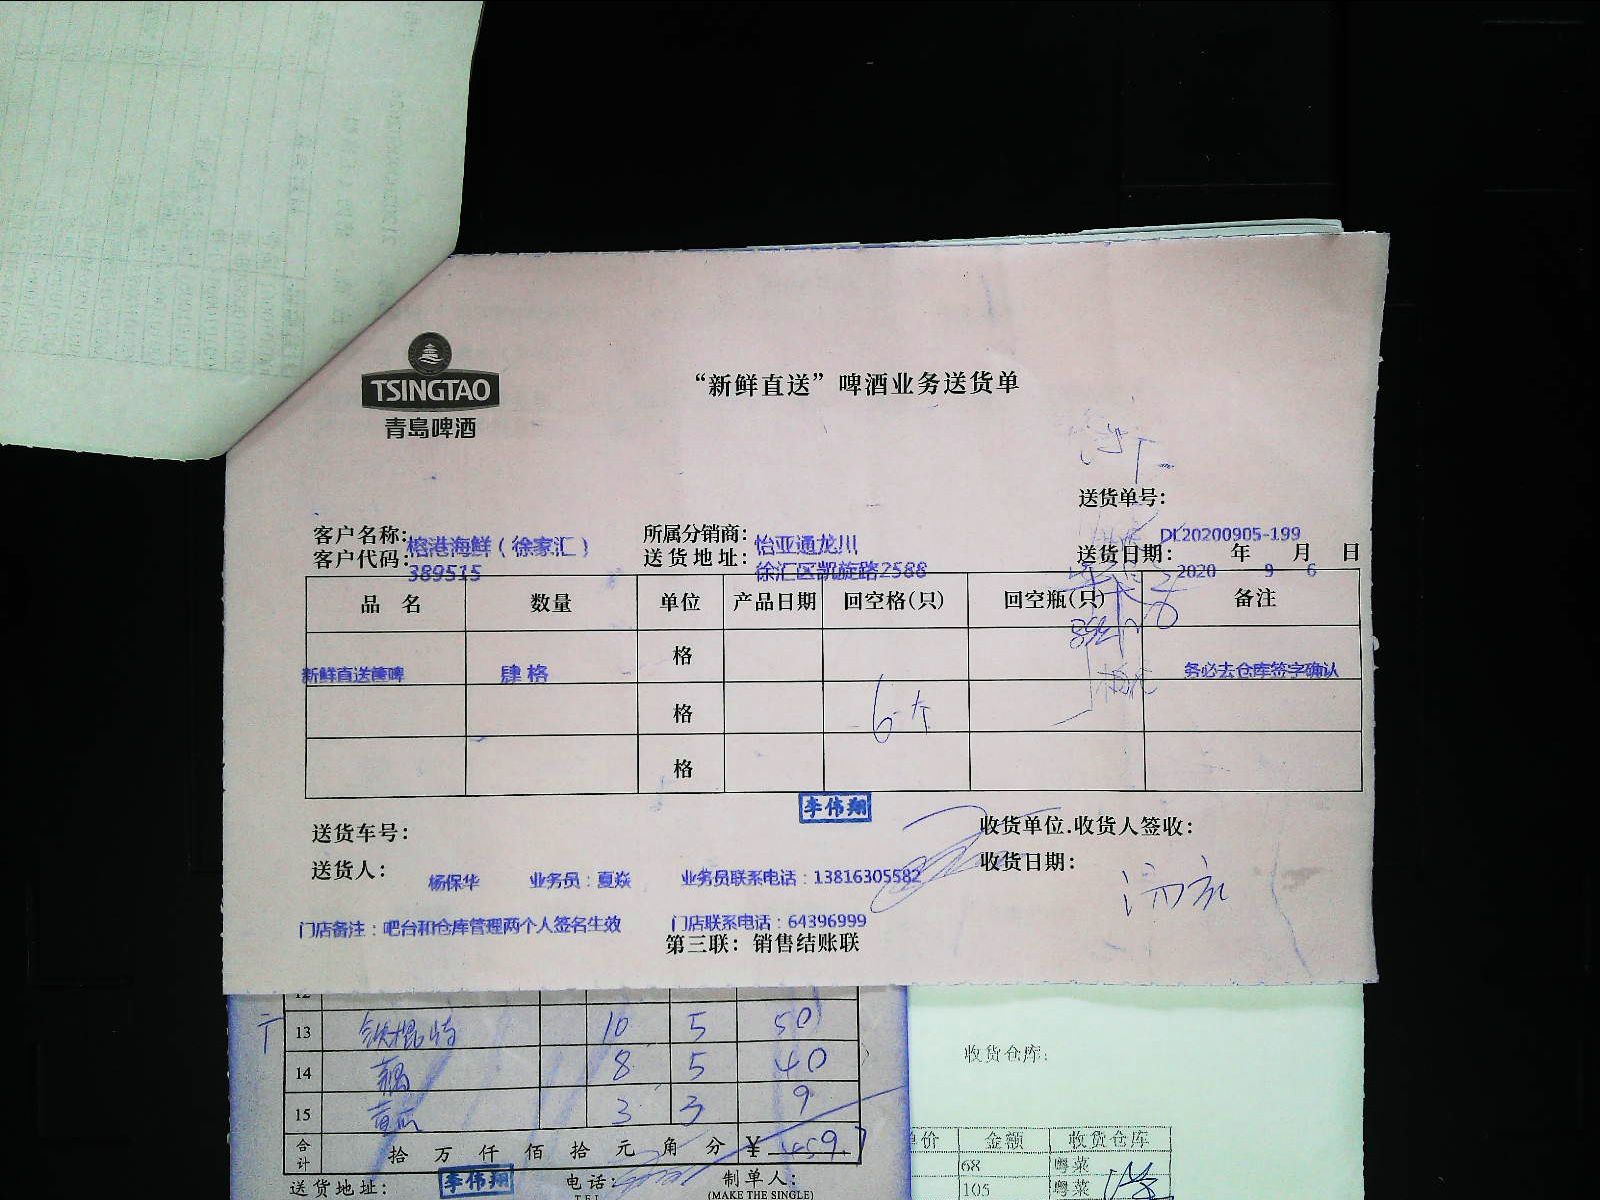 TSINGTAO
青島啤酒
“新鲜直送”啤酒业务送货单
送货单号:
DL20200905-199
客户名称: 榕港海鲜（徐家汇） 所属分销商: 怡亚通龙川
客户代码: 389515 送货地址: 徐汇区凯旋路2588 送货日期: 2020 年 9 月 6 日
品名 数量 单位 产品日期 回空格(只) 回空瓶(只) 备注
新鲜直送 肆格 格 务必去仓库签字确认
格 6个
格
李伟翔
送货车号: 收货单位.收货人签收:
送货人: 杨保华 业务员：夏焱 业务员联系电话：13816305582 收货日期:
门店备注：吧台和仓库管理两个人签名生效 门店联系电话：64396999
第三联: 销售结账联
12
13 10 5 50
14 藕 8 5 40
15 黄瓜 3 3 9
合计 拾 万 仟 佰 拾 元 角 分 ¥
送货地址: 李伟翔 电话: 制单人:
TEL (MAKE THE SINGLE)
收货仓库:
单价 金额 收货仓库
68 粤菜
105 粤菜